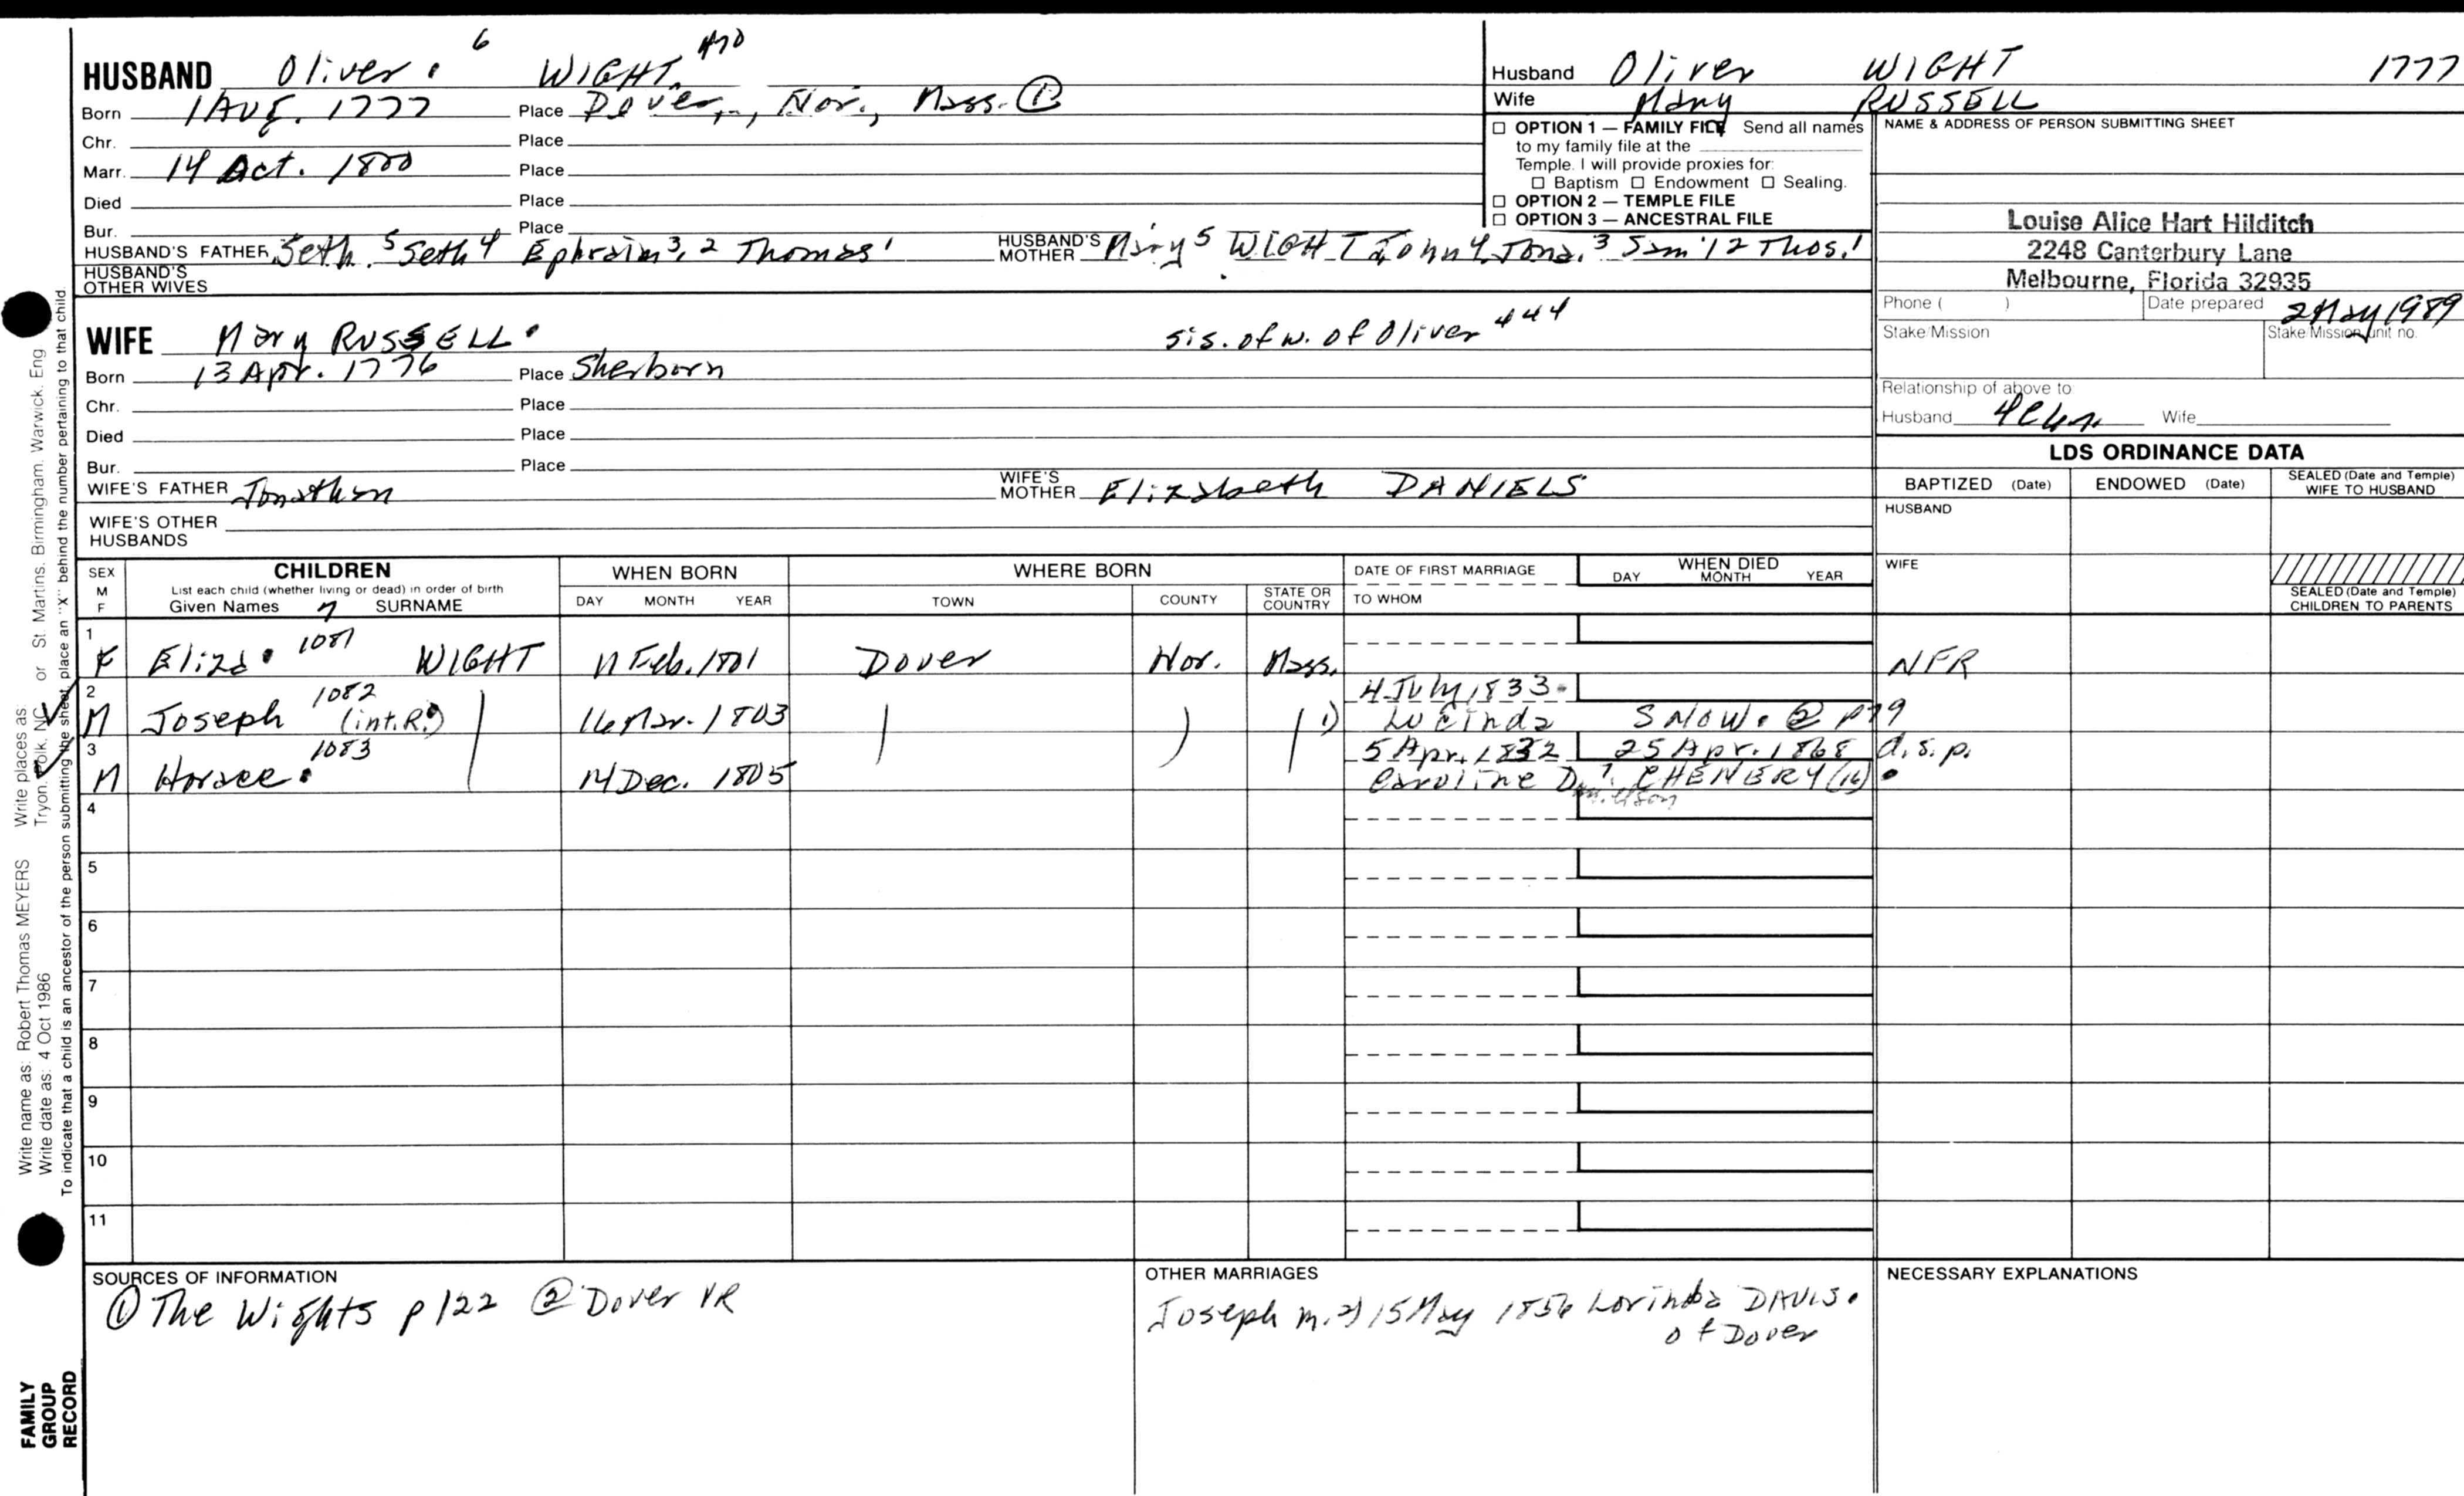 HUSBAND Oliver. 6 WIGHT. 470
Born 1 Aug. 1777 Place Dover, Nor., Mass. ①
Chr. Place
Marr. 14 Oct. 1800 Place
Died Place
Bur. Place
HUSBAND'S FATHER Seth. 5 Seth 4 Ephraim 3, 2 Thomas 1 HUSBAND'S MOTHER Mary 5 WIGHT John 4 Jona. 3 Sam'l 2 Thos. 1
HUSBAND'S OTHER WIVES
WIFE Mary RUSSELL. sis. of w. of Oliver 444
Born 13 Apr. 1776 Place Sherborn
Chr. Place
Died Place
Bur. Place
WIFE'S FATHER Jonathan WIFE'S MOTHER Elizabeth DANIELS
WIFE'S OTHER HUSBANDS
Husband Oliver WIGHT 1777
Wife Mary RUSSELL
☐ OPTION 1 — FAMILY FILE Send all names
to my family file at the
Temple. I will provide proxies for:
☐ Baptism ☐ Endowment ☐ Sealing.
☐ OPTION 2 — TEMPLE FILE
☐ OPTION 3 — ANCESTRAL FILE
NAME & ADDRESS OF PERSON SUBMITTING SHEET
Louise Alice Hart Hilditch
2248 Canterbury Lane
Melbourne, Florida 32935
Phone ( ) Date prepared 2 May 1989
Stake/Mission Stake/Mission unit no.
Relationship of above to
Husband Wife
LDS ORDINANCE DATA
BAPTIZED (Date) ENDOWED (Date) SEALED (Date and Temple) WIFE TO HUSBAND
HUSBAND
WIFE
SEALED (Date and Temple) CHILDREN TO PARENTS
SEX M F CHILDREN WHEN BORN WHERE BORN DATE OF FIRST MARRIAGE WHEN DIED
List each child (whether living or dead) in order of birth
Given Names 7 SURNAME DAY MONTH YEAR TOWN COUNTY STATE OR COUNTRY TO WHOM DAY MONTH YEAR
1 F Eliza. 1081 WIGHT 11 Feb. 1801 Dover Nor. Mass. NFR
2 M Joseph 1082 (int. R.) 16 Mar. 1803 4 July 1833 1) Lucinda SNOW. ② p79
3 M Horace. 1083 14 Dec. 1805 5 Apr. 1832 25 Apr. 1868 d.s.p.
Caroline D. CHENERY (16).
4
5
6
7
8
9
10
11
SOURCES OF INFORMATION
① The Wights p122 ② Dover VR
OTHER MARRIAGES
Joseph m. 2) 15 May 1856 Lorinda DAVIS.
of Dover
NECESSARY EXPLANATIONS
Write name as: Robert Thomas MEYERS Write places as
Write date as: 4 Oct 1986 Tryon, Polk, NC or St. Martins, Birmingham, Warwick, Eng
To indicate that a child is an ancestor of the person submitting the sheet, place an "X" behind the number pertaining to that child.
FAMILY
GROUP
RECORD